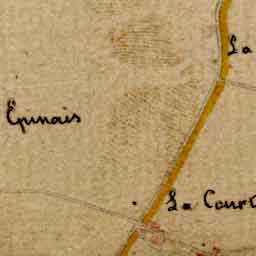 La
Epinais
La Cour